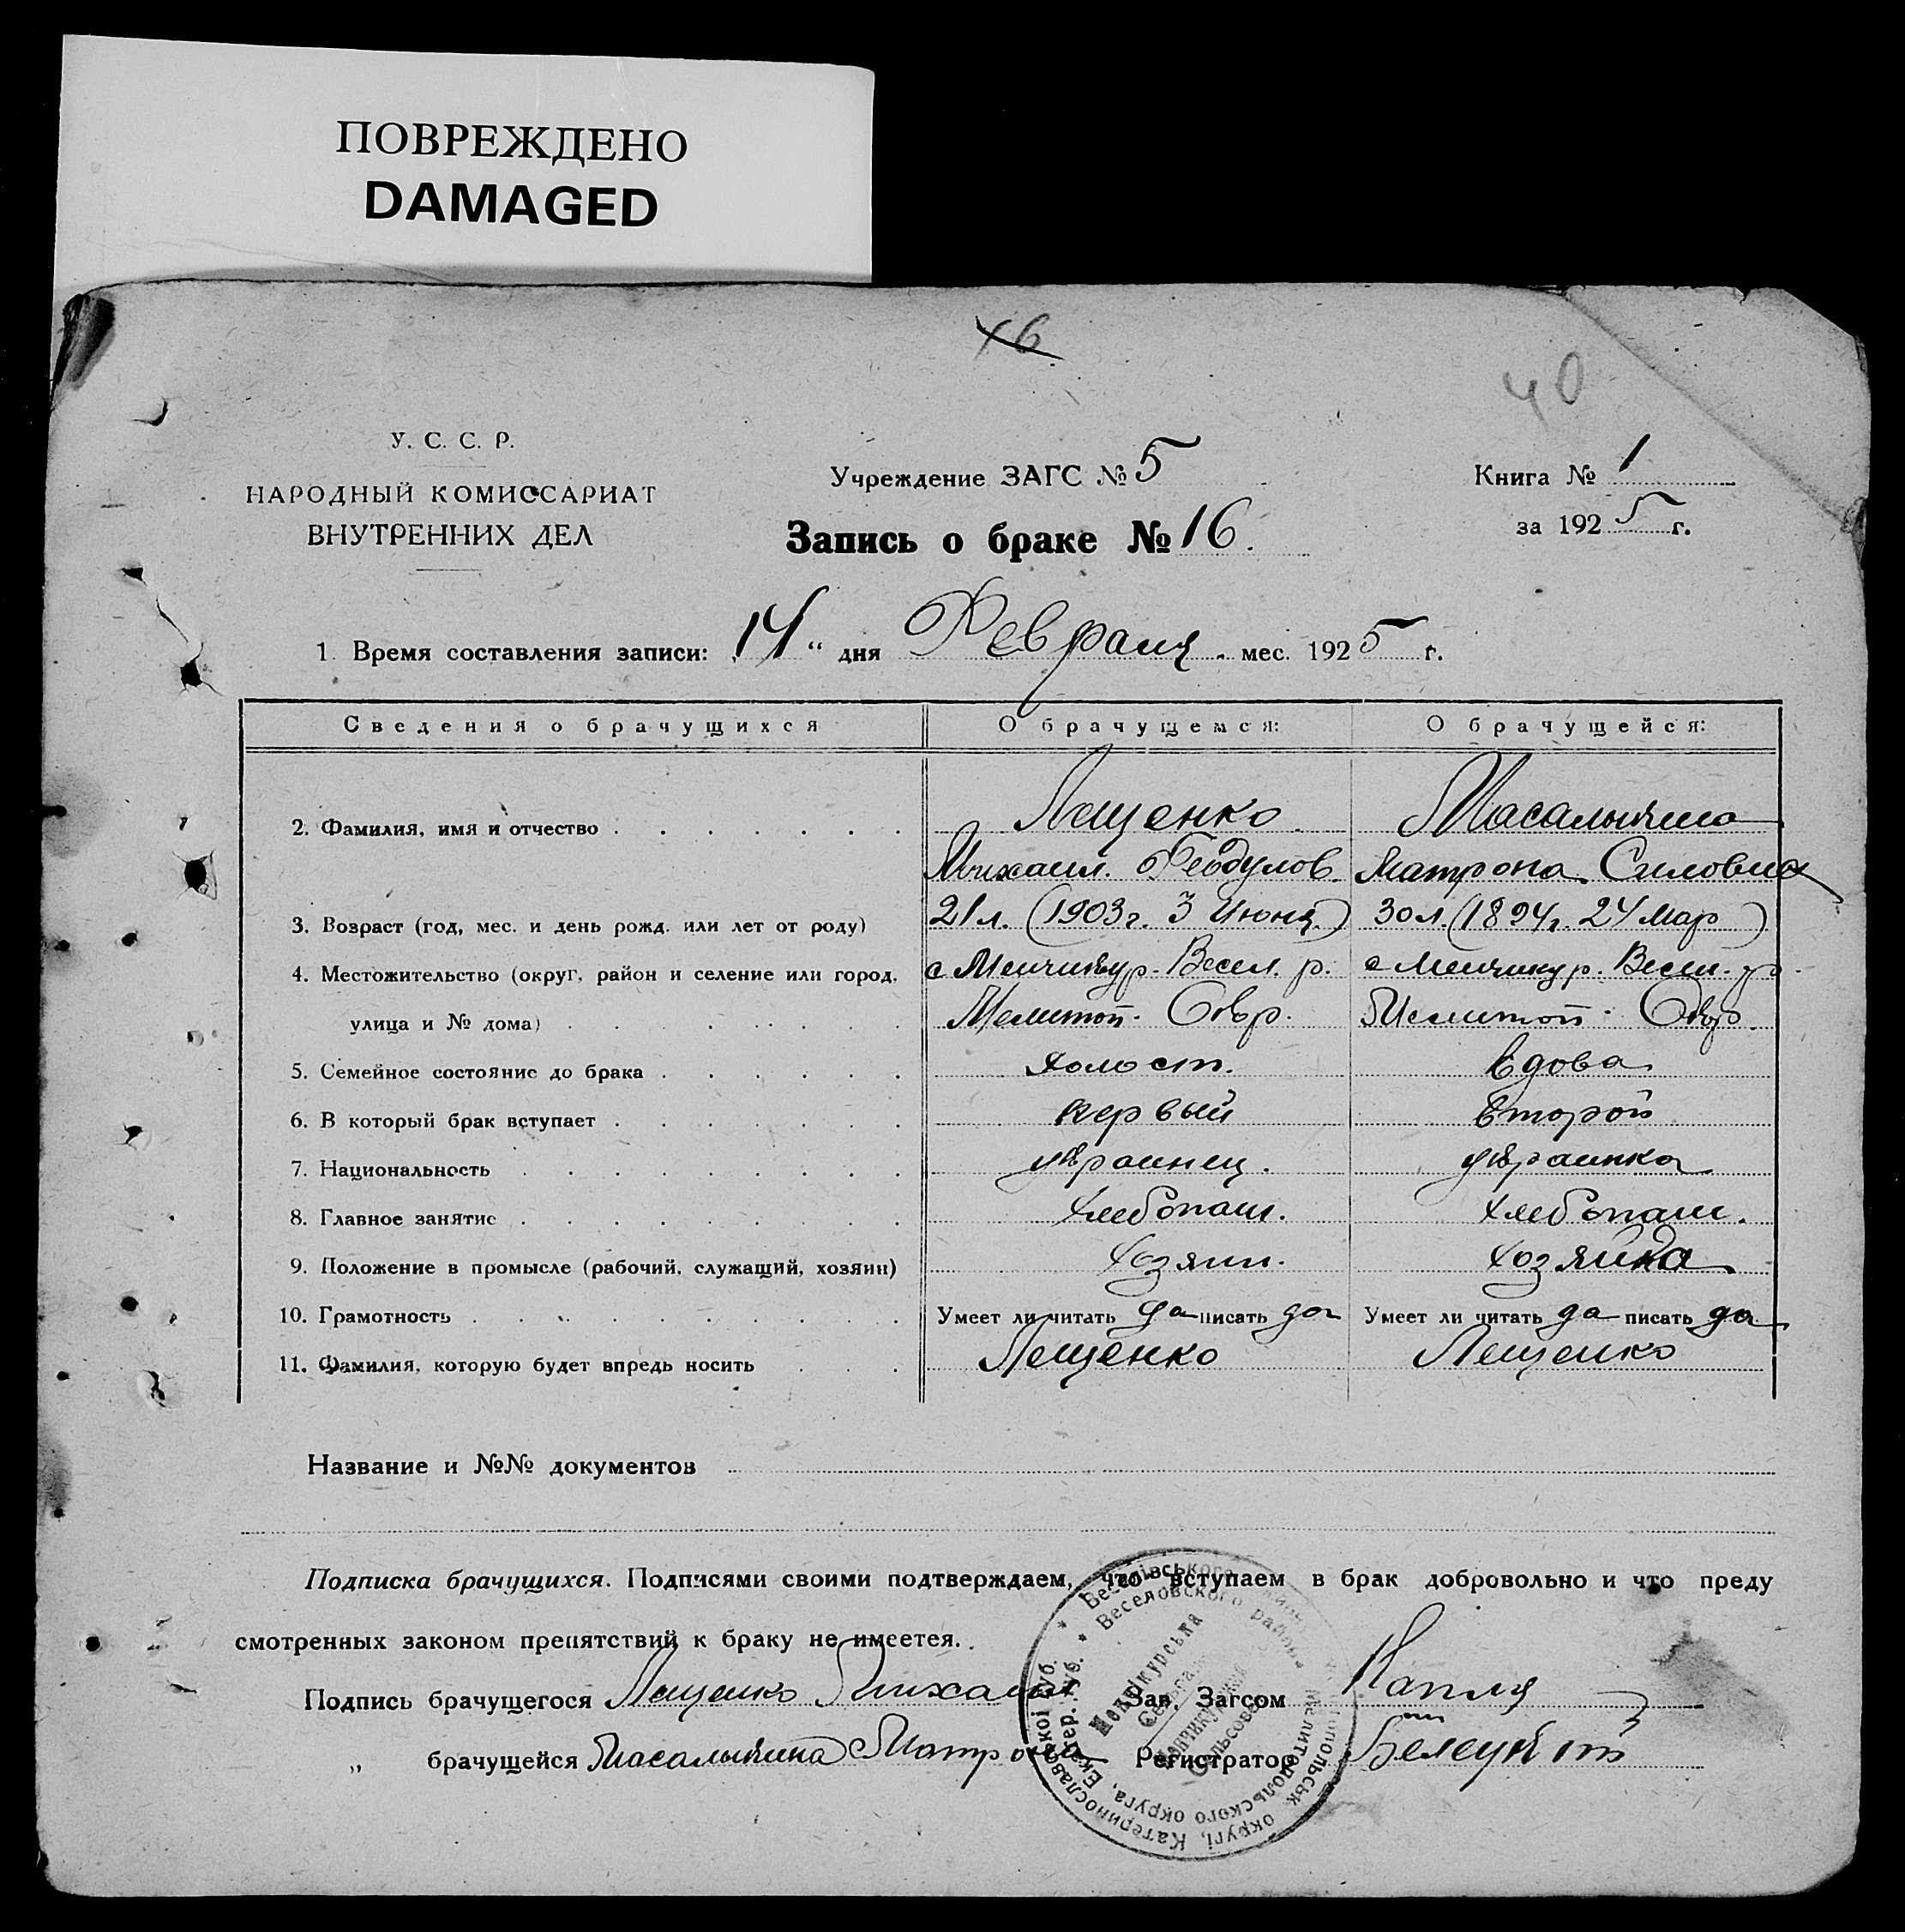 ПОВРЕЖДЕНО
DAMAGED
16
40
У. С. С. Р.
НАРОДНЫЙ КОМИССАРИАТ
ВНУТРЕННИХ ДЕЛ
Учреждение ЗАГС № 5
Запись о браке № 16.
Книга № 1
за 1925 г.
1. Время составления записи: 14 " дня Февраля мес. 1925 г.
Сведения о брачущихся О брачущемся: О брачущейся:
2. Фамилия, имя и отчество Лещенко Масалыкина
Михаил Феодулов. Матрона Силовна
3. Возраст (год, мес. и день рожд. или лет от роду) 21 л. (1903 г. 3 Июня.) 30 л. (1894 г. 24 Мар)
4. Местожительство (округ, район и селение или город, с Менчикур. Весел. р. с Менчикур. Весел. р.
улица и № дома) Мелитоп. Окр. Мелитоп. Окр.
5. Семейное состояние до брака холост. вдова
6. В который брак вступает первый второй
7. Национальность украинец. украинка
8. Главное занятие хлебопаш. хлебопаш.
9. Положение в промысле (рабочий, служащий, хозяин) хозяин. хозяйка
10. Грамотность Умеет ли читать да писать да Умеет ли читать да писать да
11. Фамилия, которую будет впредь носить Лещенко Лещенко
Название и №№ документов
Подписка брачущихся. Подписями своими подтверждаем, что вступаем в брак добровольно и что преду
смотренных законом препятствий к браку не имеетея.
Подпись брачущегося Лещенко Михаил Зав. Загсом Капля
„ брачущейся Масалыкина Матрона Регистратор
Веселівського
Веселовского района
Катеринославської губ.
Екатер. губ.
Мелитопольского округа,
округі,